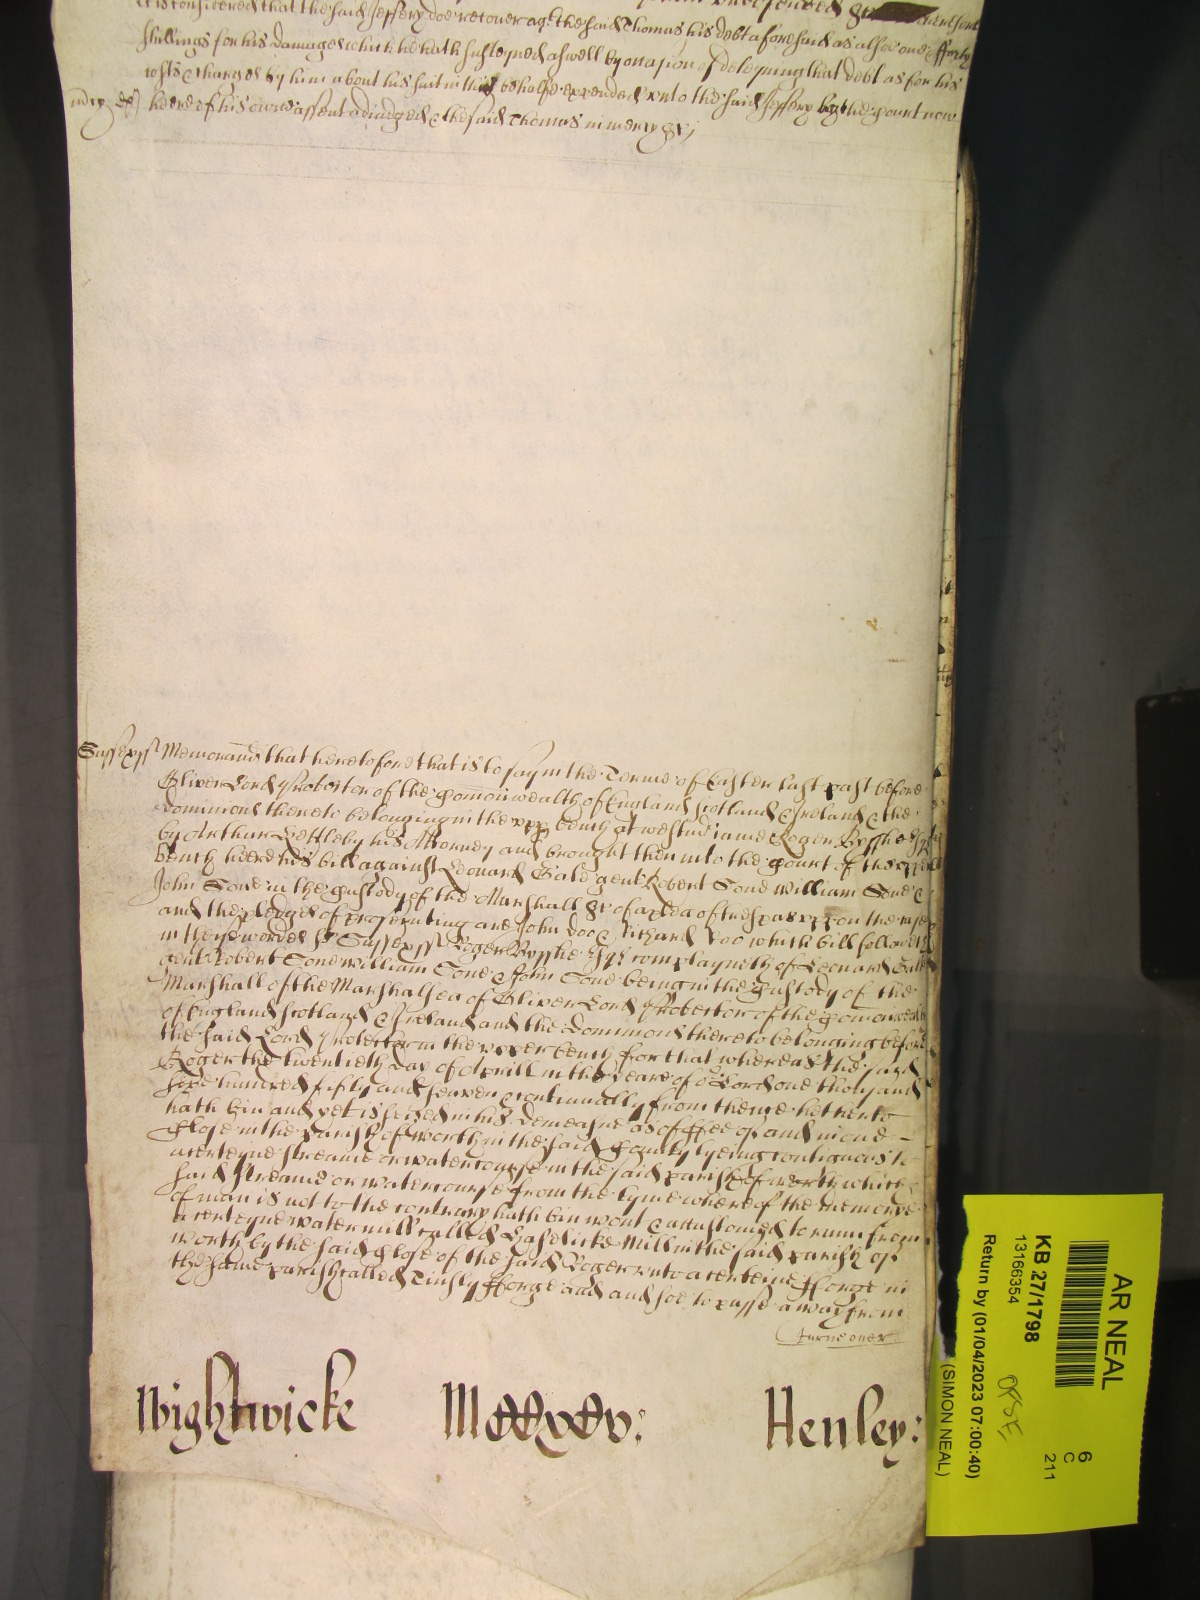 it is considered that the said Jeffery doe recover agt the said Thomas his debt aforesaid as alsoe one &
shillings for his damages which he hath susteyned aswell by occasion of deteyning that debt as for his
costs & charges by him about his suit in this behalfe expended unto the said Jeffery by the Court now
heere of his owne assent adiudged & the said Thomas in mercy &c
Sussex ss Memorand that heretofore that is to say in the Terme of Easter last past before
Oliver Lord Protector of the Comonwealth of England Scotland & Ireland & the
Dominions thereto belonging in the upp bench at Westm came Roger Bysshe Esq
by Arthur Bettleby his Attorney and brought then into the Court of the upper
bench heere his bill against Leonard Gale gent Robert Sone William Sone &
John Sone in the Custody of the Marshall &c of a plea of trespas upon the case
and the pledges of prosecuting are John Doo & Richard Roo which bill followeth
in theise wordes ss Sussex ss Roger Bysshe Esq complayneth of Leonard Gale
gent Robert Sone William Sone & John Sone being in the Custody of the
Marshall of the Marshalsea of Oliver Lord Protector of the Comonwealth
of England Scotland & Ireland and the Dominions thereto belonging before
the said Lord Protector in the upper bench for that whereas the said
Roger the twentieth day of Aprill in the yeare of or Lord one thousand
sixe hundred fifty and seven & continually from thence hitherto
hath bin and yet is seized in his demeasne as of ffee of and in one
Close in the parish of Worth in the said County lyeing contiguous to
a certeyne streame or watercourse in the said parish of Worth which
said streame or watercourse from the tyme whereof the memorie
of man is not to the contrary hath bin wont & accustomed to runn from
a certeyne watermill called Haselicke Mill in the said parish of
Worth by the said Close of the said Roger unto a certeine fforge in
the same parish called Tinsly fforge and and soe to passe away from
turne over
Wightwicke Henley:
AR NEAL
KB 27/1798
13166354
Return by (01/04/2023 07:00:40)
(SIMON NEAL)
6
C
211